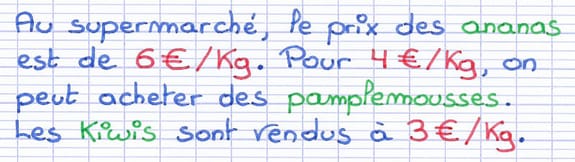 Au supermarché, le prix des ananas
est de 6€/Kg. Pour 4€/Kg, on
peut acheter des pamplemousses.
Les Kiwis sont vendus à 3€/Kg.